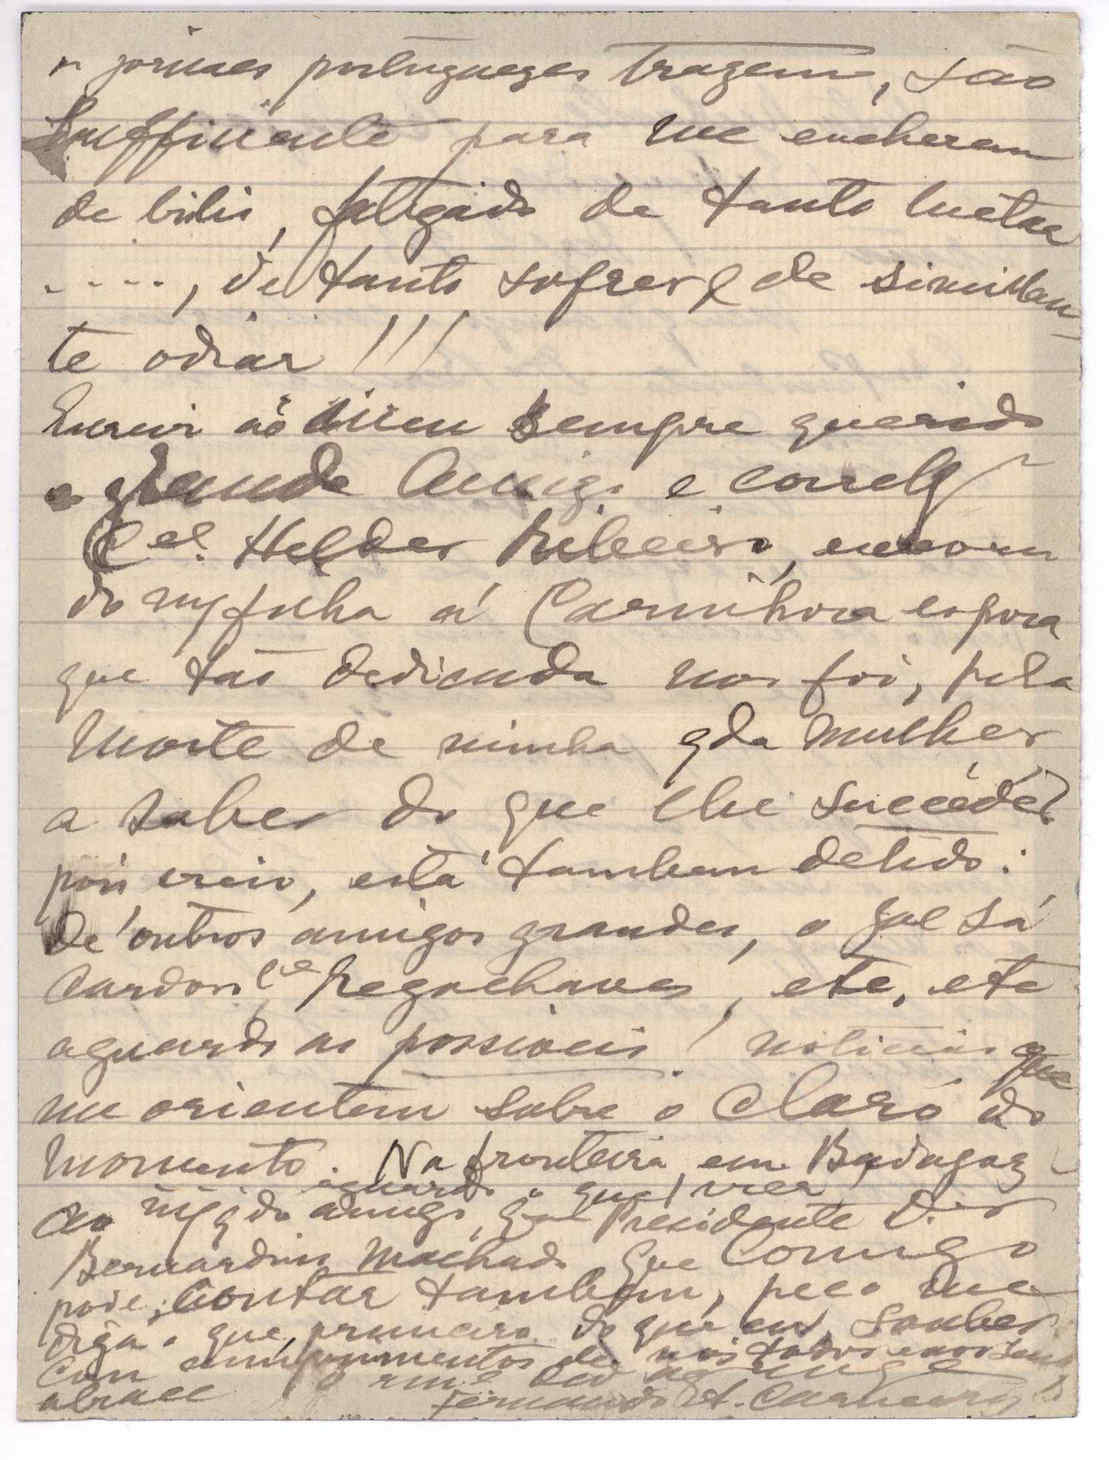 jornaes portuguezes trazem, são
sufficiente para me encherem
de bilis, fatigado de tanto luctar
...., de tanto sofrer e de similhan-
te odiar!!!
Escrevi ao meu sempre querido
e grande Amigo e correlg
Cel. Helder Ribeiro,
do mª filha á esposa
que tão dedicada nos foi, pela
morte de minha qda mulher,
a saber do que lhe succedeu
pois creio, está tambem detido.
De outros amigos grandes, o Gal Sá
Cardoso, Cel Pegachaves, etc, etc
aguardo as possiveis! noticias que
me orientem sobre o claro do
momento. Na fronteira, em Badajoz
aguardo o que! vier
Ao qdo amigo, Presidente Dor
Bernardino Machado que comigo
pode, contar tambem, peço me
diga o que, primeiro do que eu, souber.
Com cumprimentos de nós todos
abrace o am.º
Fernando A. Carneiro